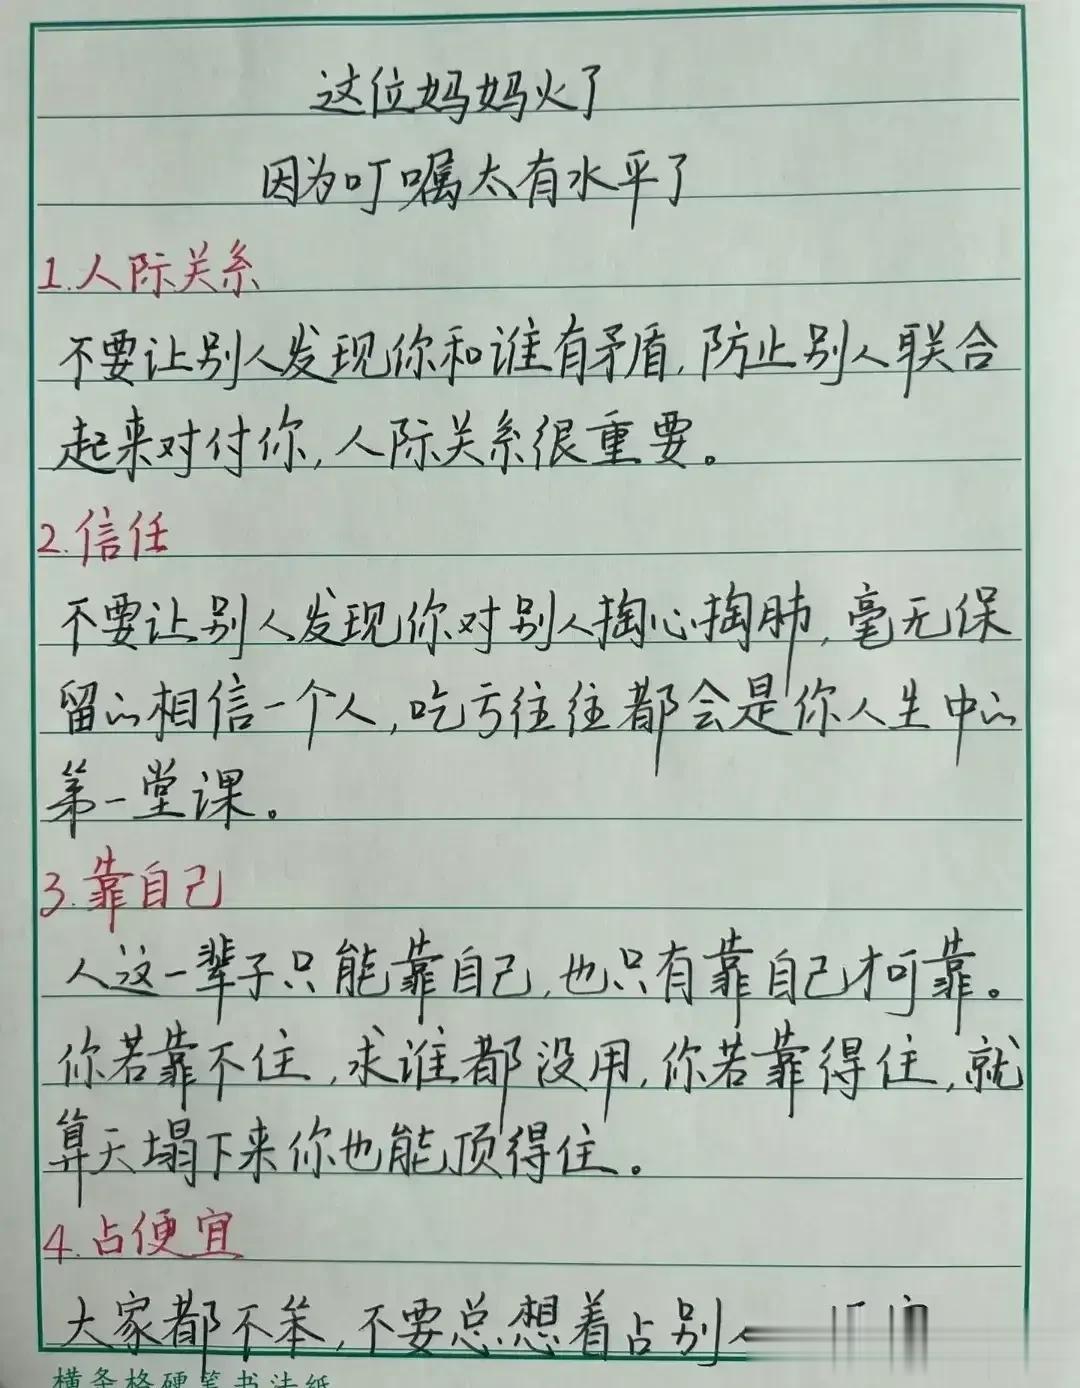 这位妈妈火了
因为叮嘱太有水平了
1.人际关系
不要让别人发现你和谁有矛盾,防止别人联合
起来对付你,人际关系很重要。
2.信任
不要让别人发现你对别人掏心掏肺,毫无保
留的相信一个人,吃亏往往都会是你人生中的
第一堂课。
3.靠自己
人这一辈子只能靠自己,也只有靠自己才可靠。
你若靠不住,求谁都没用,你若靠得住,就
算天塌下来你也能顶得住。
4.占便宜
大家都不笨,不要总想着占别
横条格硬笔书法纸